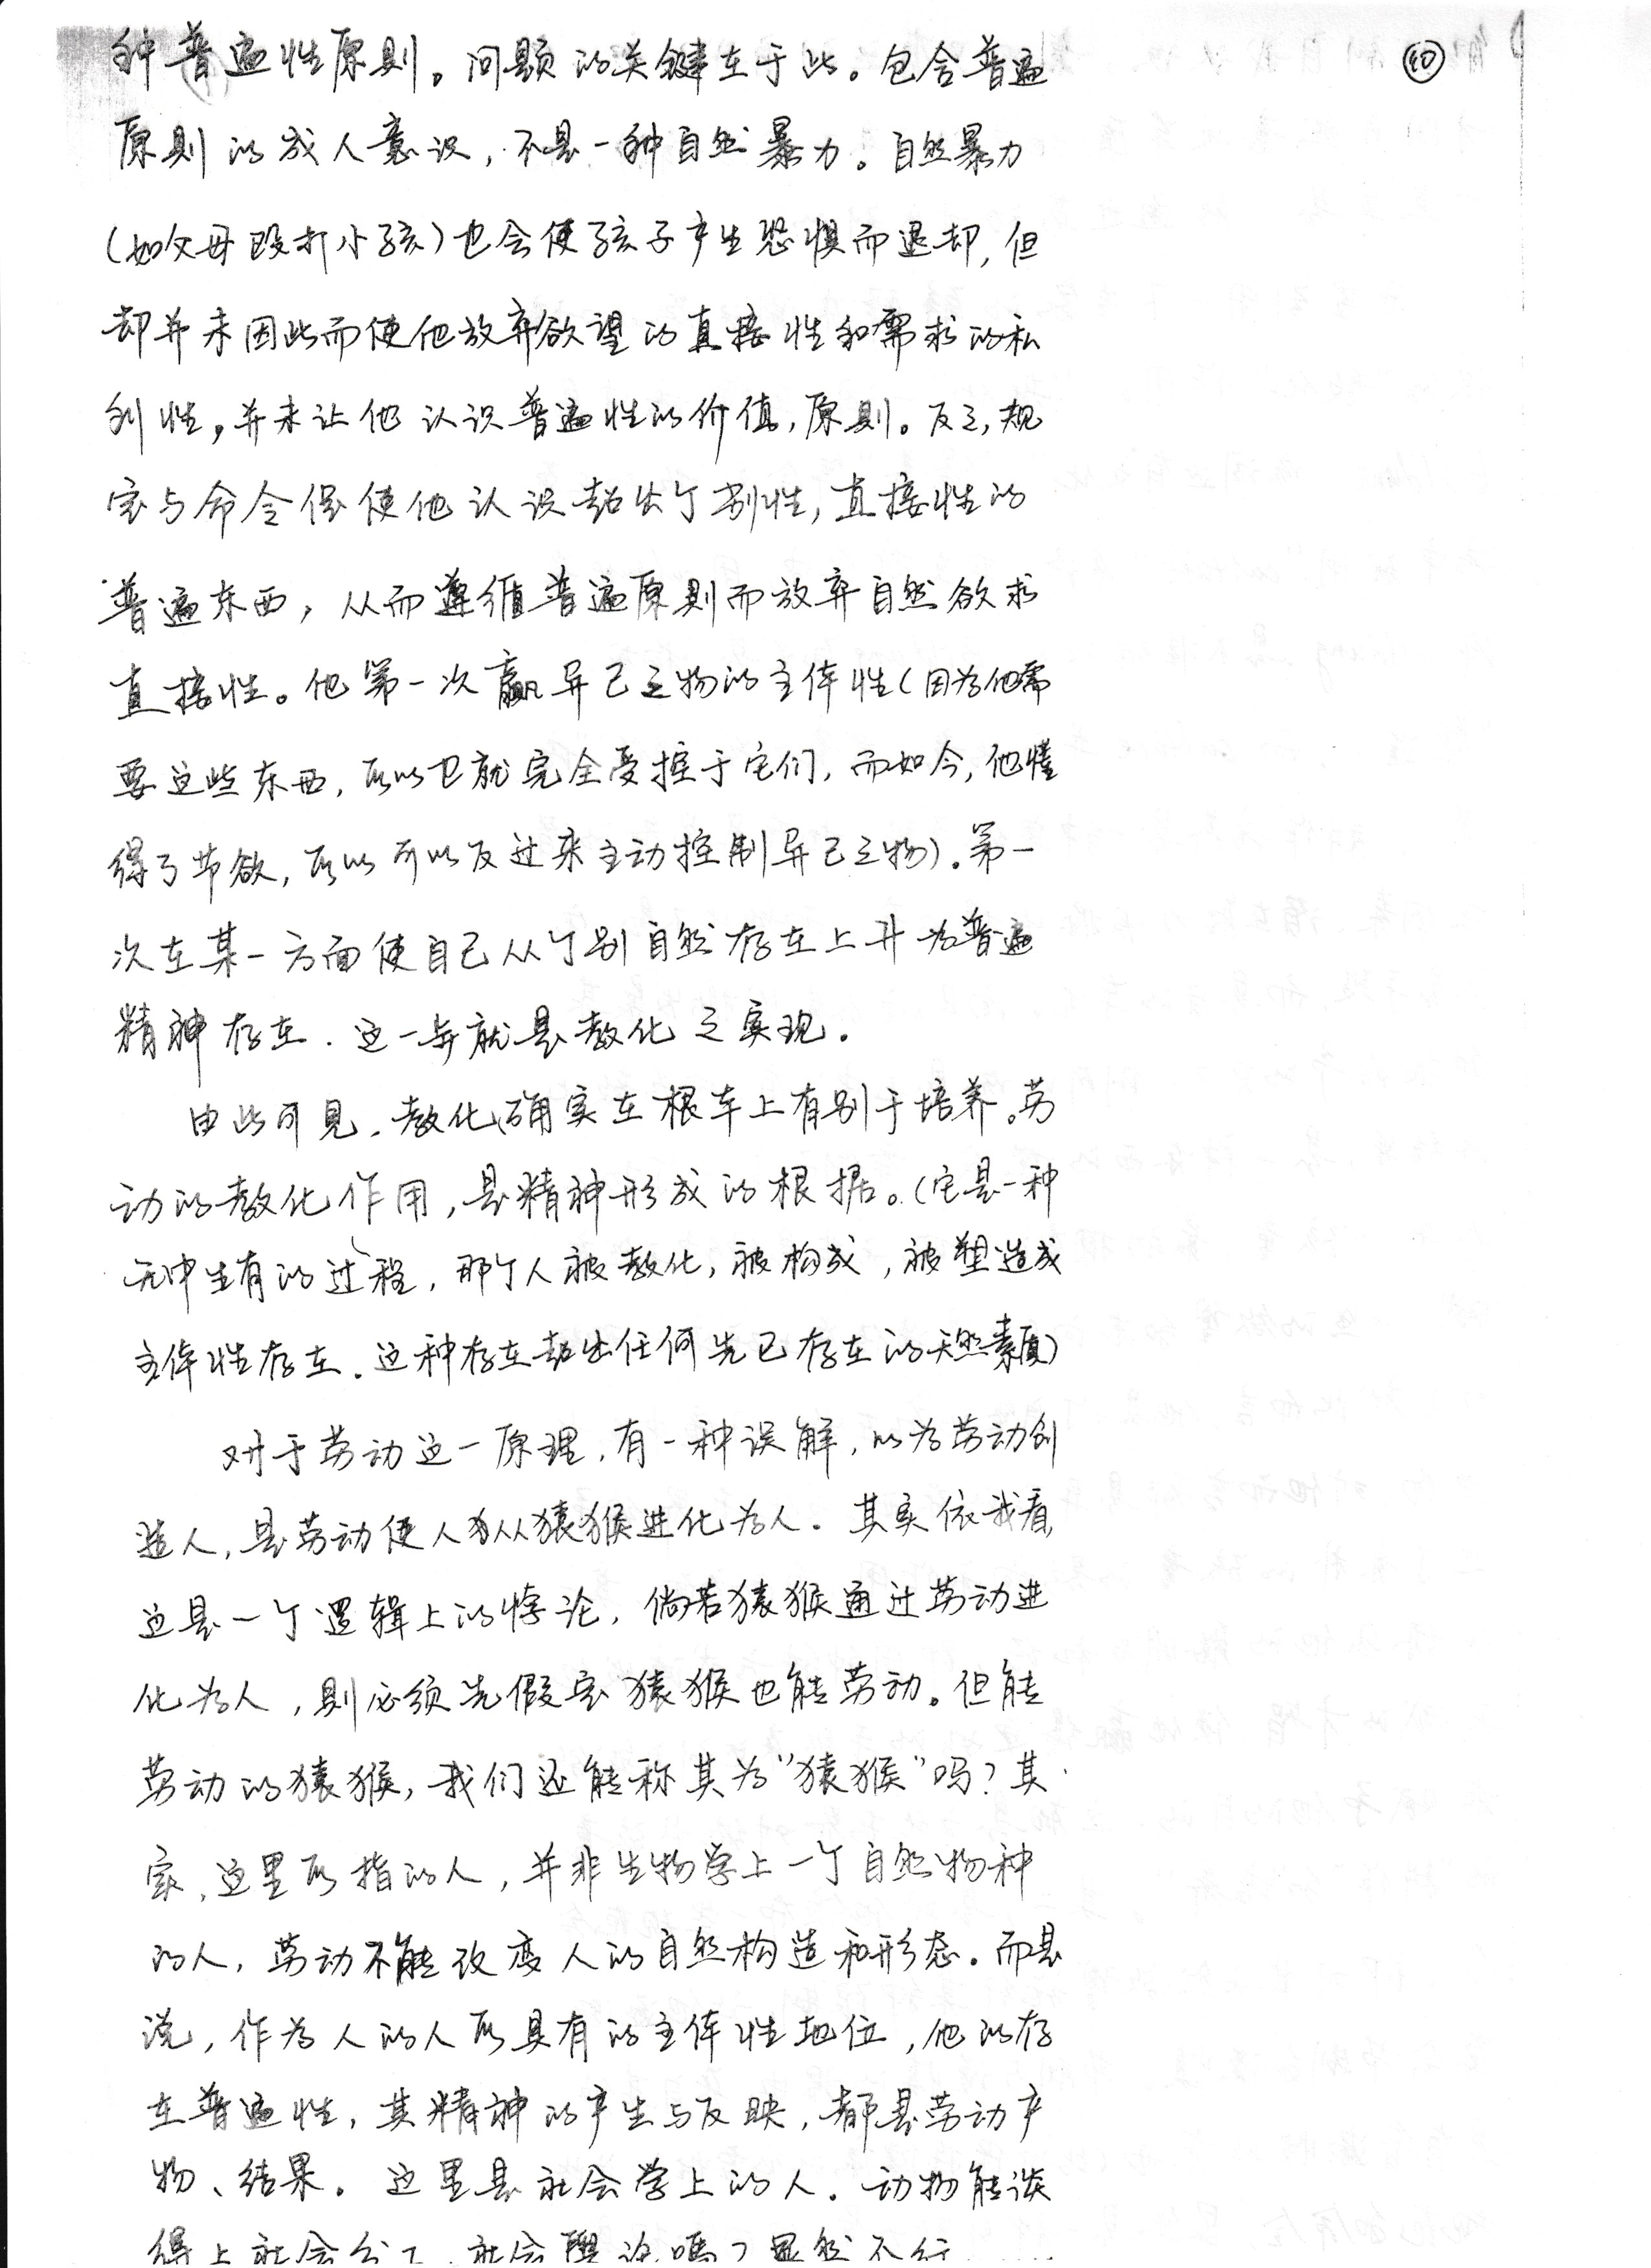 种普遍性原则。问题的关键在于此。包含普遍
原则的成人意识，不是一种自然暴力。自然暴力
（如父母殴打小孩）也会使孩子产生恐惧而退却，但
却并未因此而使他放弃欲望的直接性和需求的私
利性，并未让他认识普遍性的价值，原则。反之，规
定与命令促使他认识超出个别性，直接性的
普遍东西，从而遵循普遍原则而放弃自然欲求
直接性。他第一次赢异己之物的主体性（因为他需
要这些东西，所以也就完全受控于它们，而如今，他懂
得了节欲，所以可以反过来主动控制异己之物）。第一
次在某一方面使自己从个别自然存在上升为普遍
精神存在．这一步就是教化之实现．
由此可见．教化、确实在根本上有别于培养。劳
动的教化作用，是精神形成的根据。（它是一种
无中生有的过程，那个人被教化，被构成，被塑造成
主体性存在．这种存在超出任何先已存在的天然素质）
对于劳动这一原理，有一种误解，以为劳动创
造人，是劳动使人从猿猴进化为人．其实依我看，
这是一个逻辑上的悖论，倘若猿猴通过劳动进
化为人，则必须先假定猿猴也能劳动。但能
劳动的猿猴，我们还能称其为“猿猴”吗？其
实，这里所指的人，并非生物学上一个自然物种
的人，劳动不能改变人的自然构造和形态．而是
说，作为人的人所具有的主体性地位，他的存
在普遍性，其精神的产生与反映，都是劳动产
物、结果．这里是社会学上的人．动物能谈
得上社会分工，社会舆论吗？显然不行